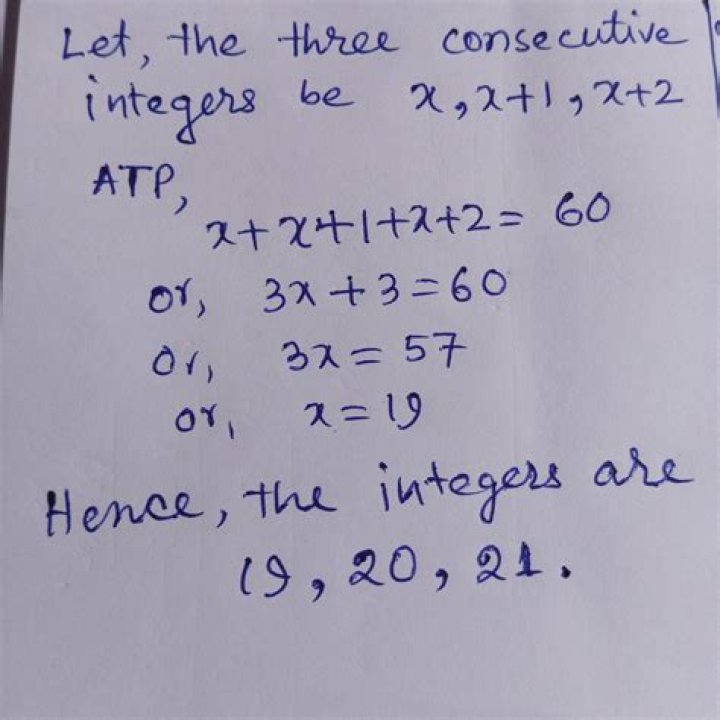 Let, the three consecutive
integers be x, x+1, x+2
ATP,
x+x+1+x+2= 60
or, 3x+3=60
or, 3x= 57
or, x=19
Hence, the integers are
19, 20, 21.